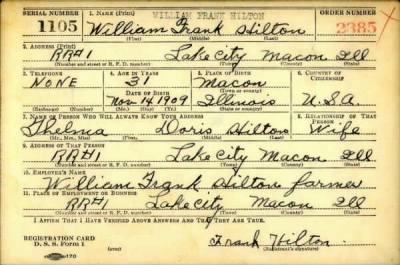 SERIAL NUMBER 1. NAME (Print) WILLIAM FRANK HILTON ORDER NUMBER
1105 William Frank Hilton 2385
(First) (Middle) (Last)
2. ADDRESS (Print)
RR#1 Lake City Macon Ill
(Number and street or R. F. D. number) (Town) (County) (State)
3. TELEPHONE 4. AGE IN YEARS 5. PLACE OF BIRTH 6. COUNTRY OF CITIZENSHIP
NONE 31 Macon
(Town or county)
DATE OF BIRTH
Nov. 14 1909 Illinois U.S.A
(Mo.) (Day) (Yr.) (State or country)
7. NAME OF PERSON WHO WILL ALWAYS KNOW YOUR ADDRESS 8. RELATIONSHIP OF THAT PERSON
Thelma Doris Hilton Wife
(Mr., Mrs., Miss) (First) (Middle) (Last)
9. ADDRESS OF THAT PERSON
RR#1 Lake City Macon Ill
(Number and street or R. F. D. number) (Town) (County) (State)
10. EMPLOYER'S NAME
William Frank Hilton farmer
11. PLACE OF EMPLOYMENT OR BUSINESS
RR#1 Lake City Macon Ill
(Number and street or R. F. D. number) (Town) (County) (State)
I AFFIRM THAT I HAVE VERIFIED ABOVE ANSWERS AND THAT THEY ARE TRUE.
REGISTRATION CARD
D. S. S. Form 1 Frank Hilton
(Registrant's signature)